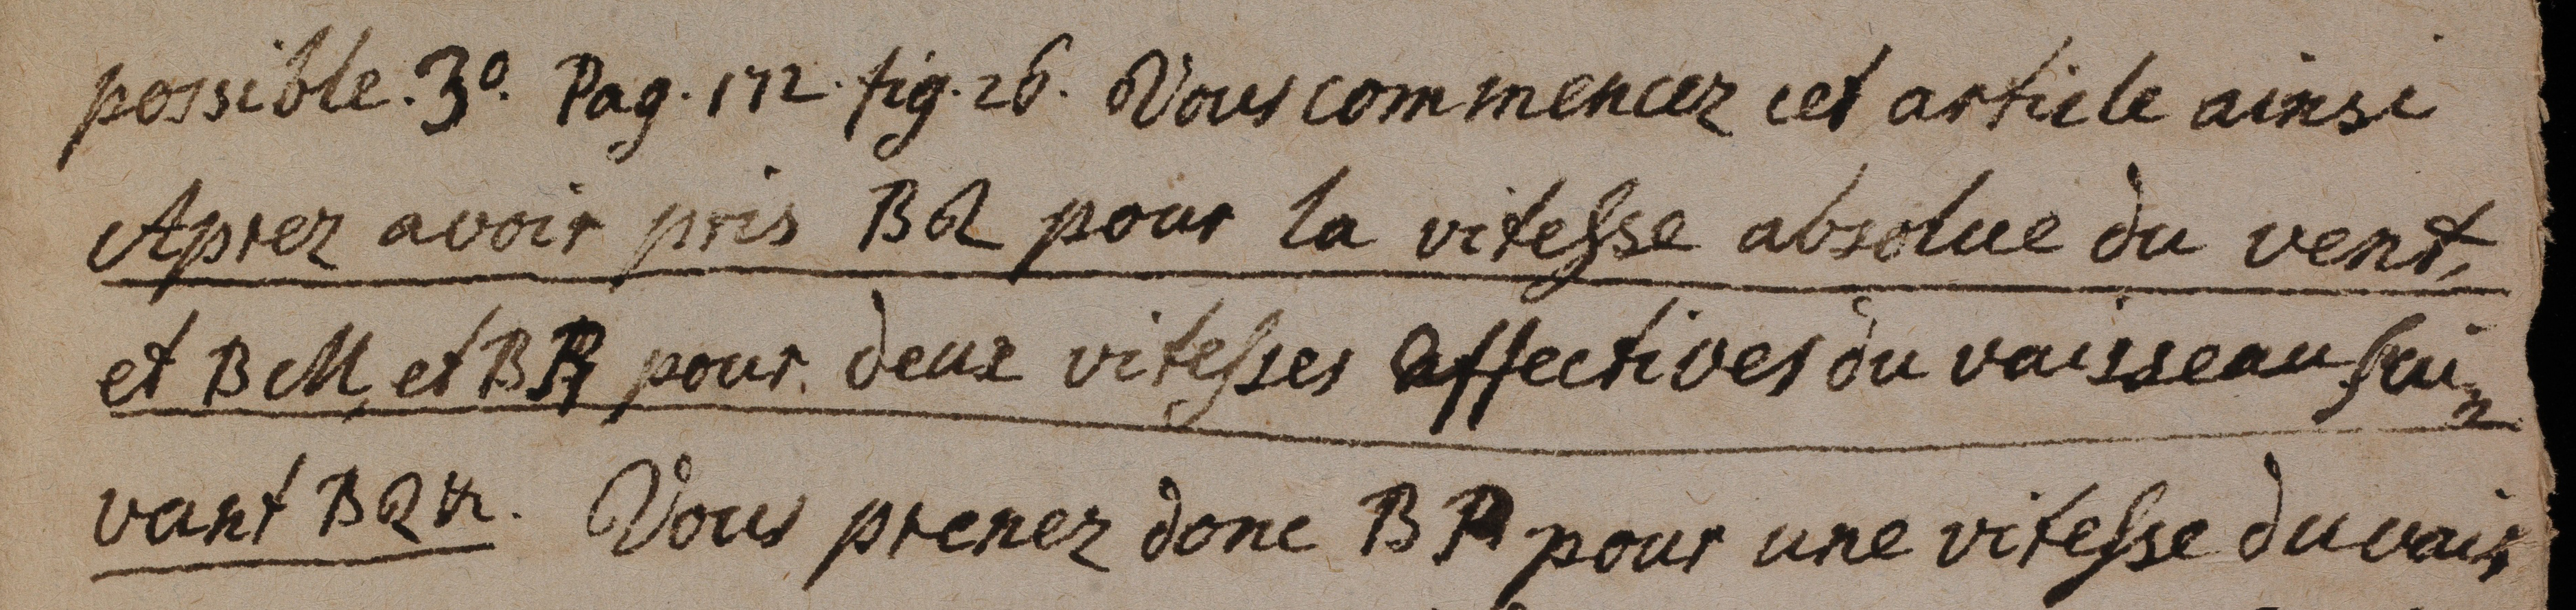 possible. 3º. Pag. 172. fig. 26. Vous commencez cet article ainsi
Aprez avoir pris BQ pour la vitesse absolue du vent,
et BM, et BR pour deux vitesses affectives du vaisseau sui
vant BQ &c. Vous prenez donc BR pour une vitesse du vais